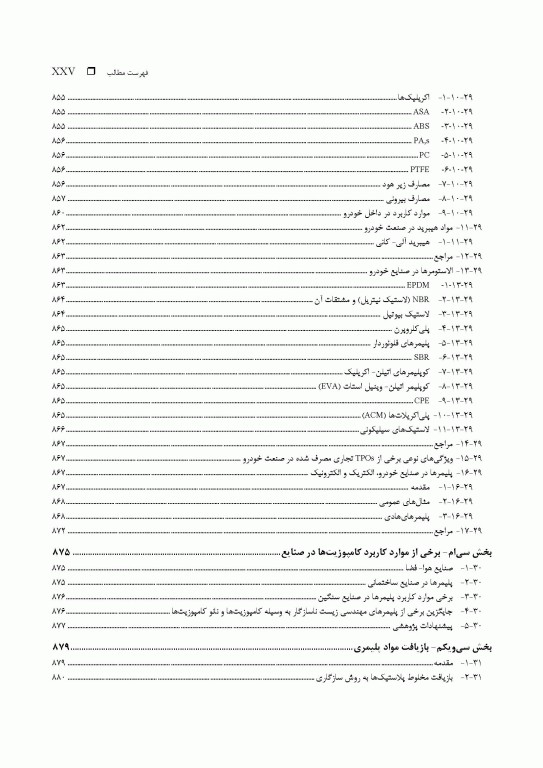 فهرست مطالب ❒ XXV
۲۹-۱۰-۱- اکریلیک‌ها ۸۵۵
۲۹-۱۰-۲- ASA ۸۵۵
۲۹-۱۰-۳- ABS ۸۵۵
۲۹-۱۰-۴- PA,s ۸۵۶
۲۹-۱۰-۵- PC ۸۵۶
۲۹-۱۰-۶- PTFE ۸۵۶
۲۹-۱۰-۷- مصارف زیر هود ۸۵۶
۲۹-۱۰-۸- مصارف بیرونی ۸۵۷
۲۹-۱۰-۹- موارد کاربرد در داخل خودرو ۸۶۰
۲۹-۱۱- مواد هیبرید در صنعت خودرو ۸۶۲
۲۹-۱۱-۱- هیبرید آلی- کانی ۸۶۲
۲۹-۱۲- مراجع ۸۶۳
۲۹-۱۳- الاستومرها در صنایع خودرو ۸۶۳
۲۹-۱۳-۱- EPDM ۸۶۳
۲۹-۱۳-۲- NBR (لاستیک نیتریل) و مشتقات آن ۸۶۴
۲۹-۱۳-۳- لاستیک بیوتیل ۸۶۴
۲۹-۱۳-۴- پلی‌کلروپرن ۸۶۵
۲۹-۱۳-۵- پلیمرهای فلوئوردار ۸۶۵
۲۹-۱۳-۶- SBR ۸۶۵
۲۹-۱۳-۷- کوپلیمرهای اتیلن- اکریلیک ۸۶۵
۲۹-۱۳-۸- کوپلیمر اتیلن- وینیل استات (EVA) ۸۶۵
۲۹-۱۳-۹- CPE ۸۶۵
۲۹-۱۳-۱۰- پلی‌اکریلات‌ها (ACM) ۸۶۵
۲۹-۱۳-۱۱- لاستیک‌های سیلیکونی ۸۶۶
۲۹-۱۴- مراجع ۸۶۷
۲۹-۱۵- ویژگی‌های نوعی برخی از TPOs تجاری مصرف شده در صنعت خودرو ۸۶۷
۲۹-۱۶- پلیمرها در صنایع خودرو، الکتریک و الکترونیک ۸۶۷
۲۹-۱۶-۱- مقدمه ۸۶۷
۲۹-۱۶-۲- مثال‌های عمومی ۸۶۸
۲۹-۱۶-۳- پلیمرهای‌هادی ۸۶۸
۲۹-۱۷- مراجع ۸۷۲
بخش سی‌ام- برخی از موارد کاربرد کامپوزیت‌ها در صنایع ۸۷۵
۳۰-۱- صنایع هوا- فضا ۸۷۵
۳۰-۲- پلیمرها در صنایع ساختمانی ۸۷۵
۳۰-۳- برخی موارد کاربرد پلیمرها در صنایع سنگین ۸۷۶
۳۰-۴- جایگزین برخی از پلیمرهای مهندسی زیست ناسازگار به وسیله کامپوزیت‌ها و نئو کامپوزیت‌ها ۸۷۶
۳۰-۵- پیشنهادات پژوهشی ۸۷۷
بخش سی‌ویکم- بازیافت مواد پلیمری ۸۷۹
۳۱-۱- مقدمه ۸۷۹
۳۱-۲- بازیافت مخلوط پلاستیک‌ها به روش سازگاری ۸۸۰